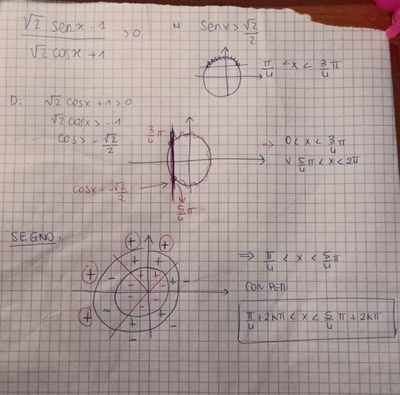 √2 senx - 1 / √2 cosx + 1 > 0
N senx > √2/2
π/4 < x < 3/4 π
D: √2 cosx + 1 > 0
√2 cosx > -1
cosx > -√2/2
3/4 π
→ 0 < x < 3/4 π
∨ 5/4 π < x < 2π
cosx = -√2/2
5/4 π
SEGNO:
⇒ π/4 < x < 5/4 π
π/4 + 2kπ < x < 5/4 π + 2kπ